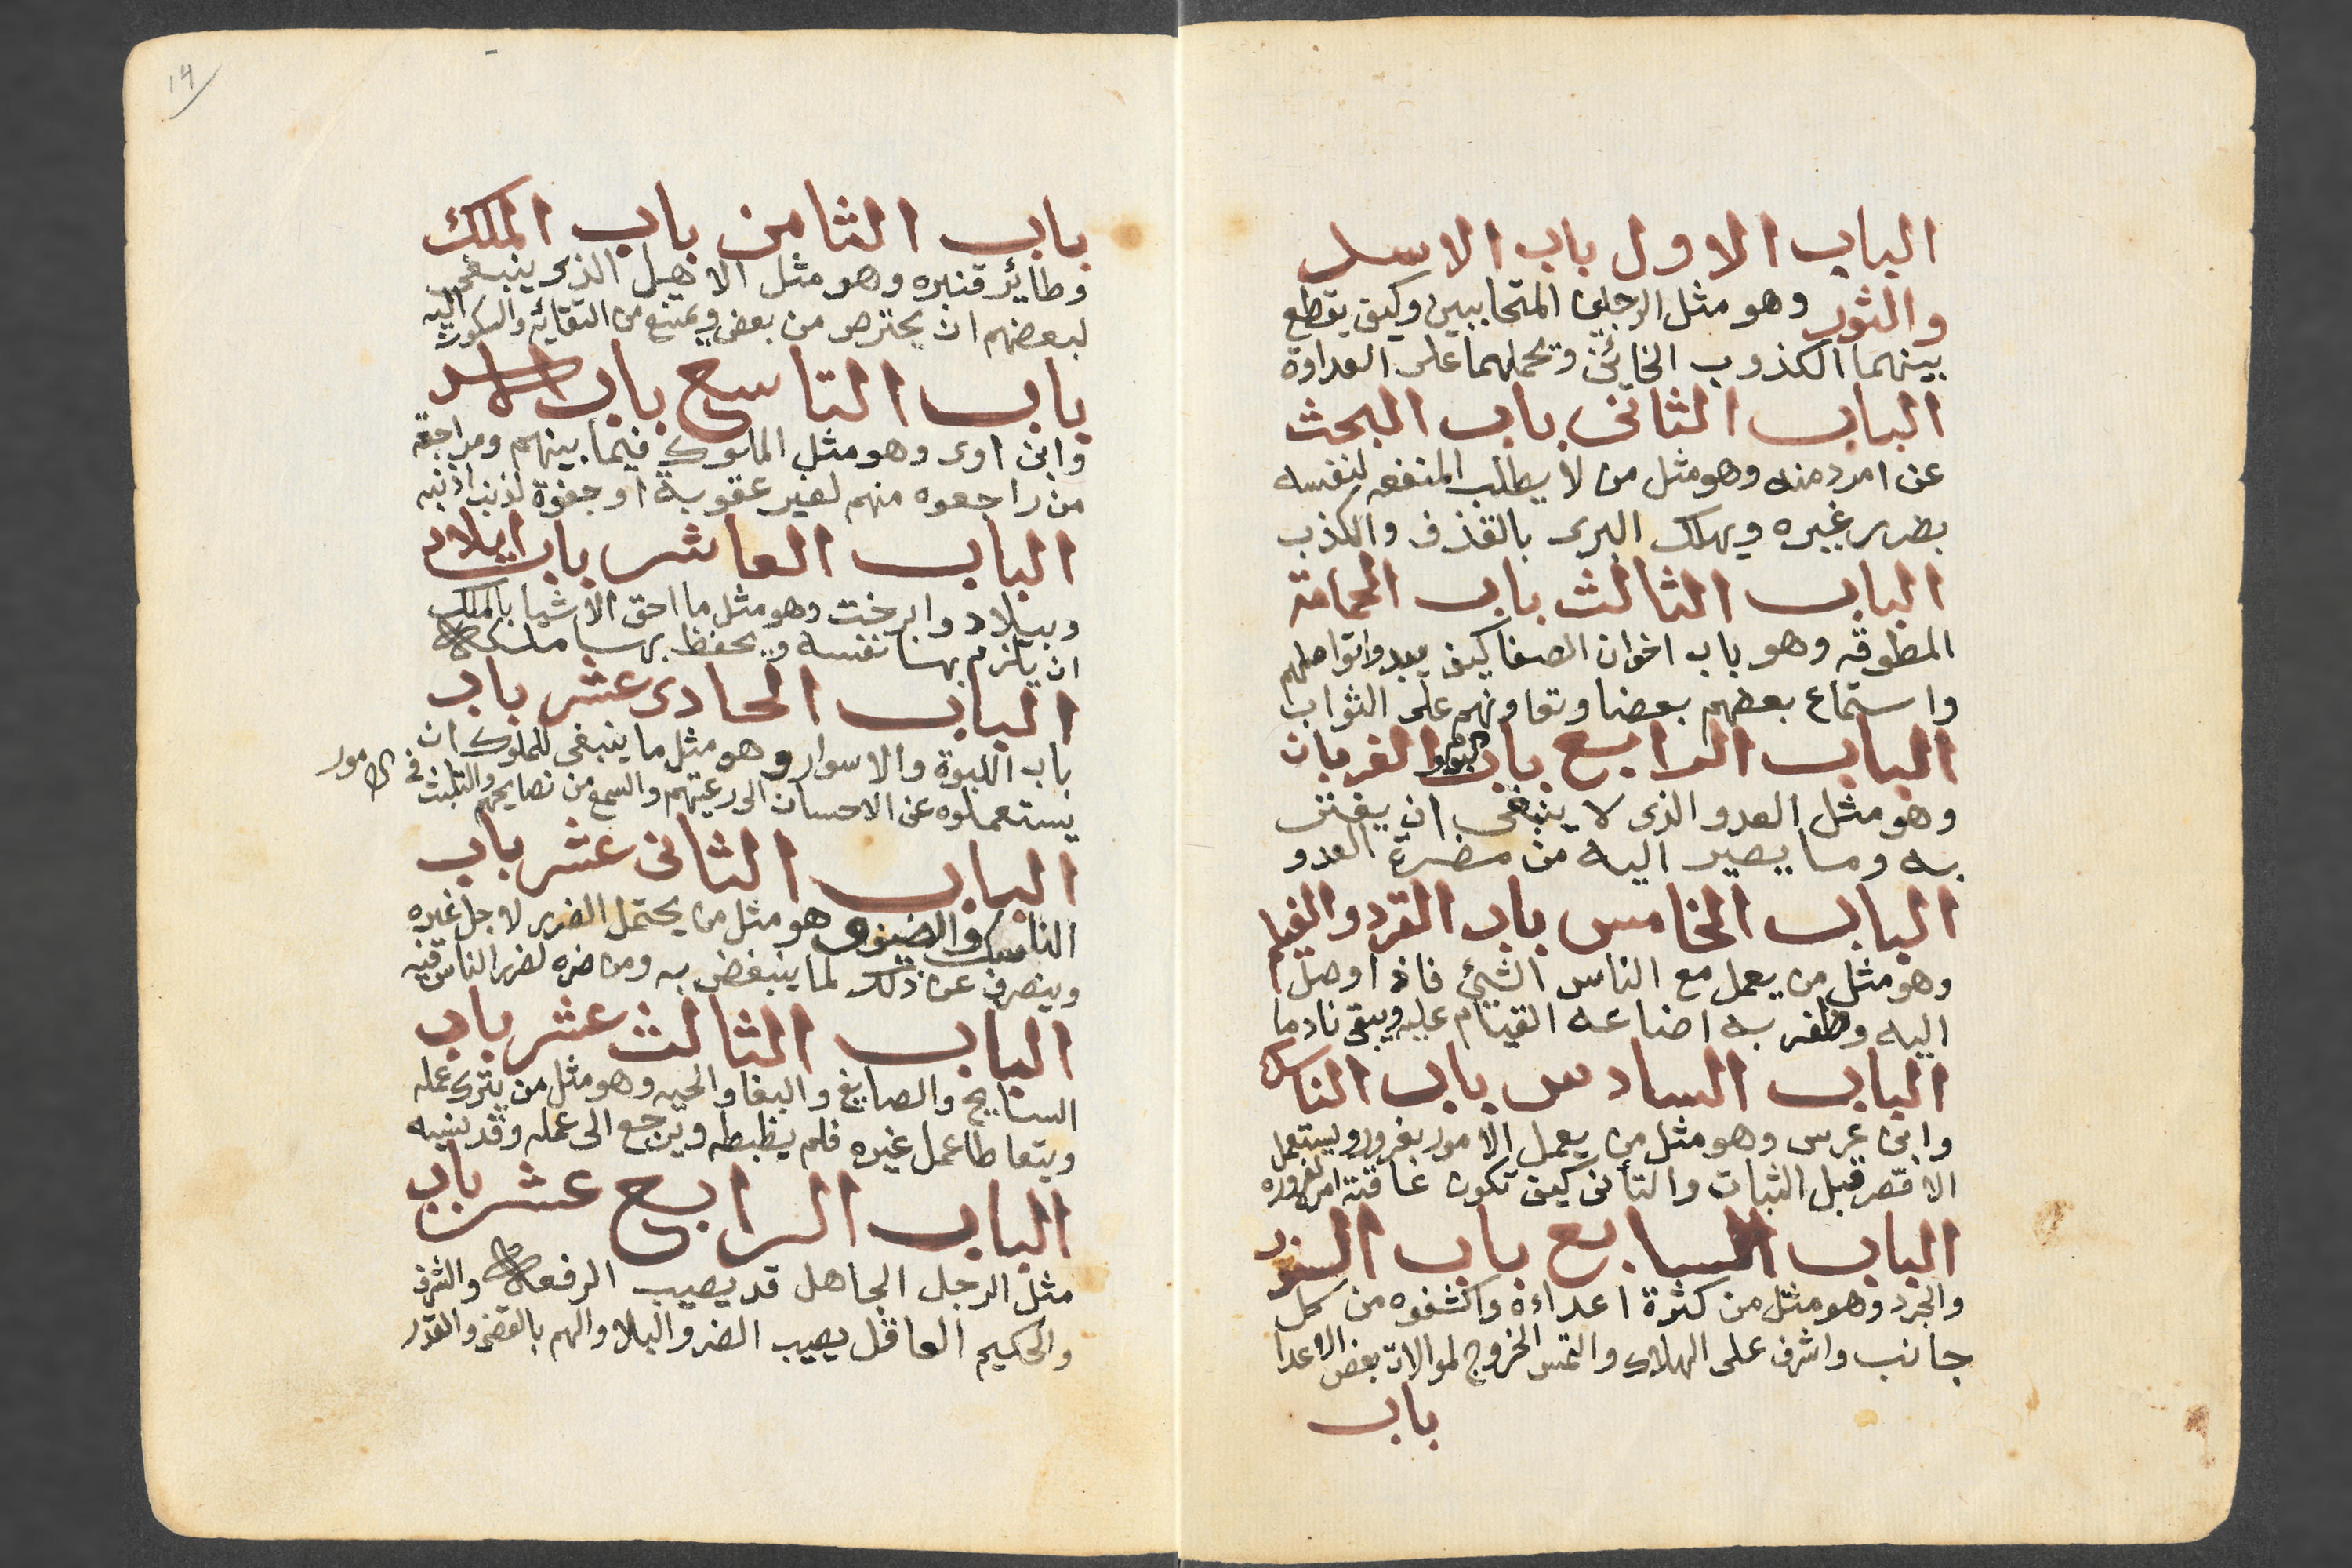 الباب الاول باب الاسد
والثور وهو مثل الرجلين المتحاببين وكيف يقطع
بينهما الكذوب الخائن ويحملهما على العداوة
الباب الثانى باب البحث
عن امر دمنه وهو مثل من لا يطلب المنفعه لنفسه
بضرر غيره ويهلك البرى بالقذف والكذب
الباب الثالث باب الحمامة
المطوقه وهو باب اخوان الصفا كيف يبدوا تواصلهم
واستماع بعضهم بعضا وتعاونهم على الثواب
الباب الرابع باب البوم والغربان
وهو مثل العدو الذى لا ينبغى ان يغتر
به وما يصير اليه من مضرة العدو
الباب الخامس باب القرد والغيلم
وهو مثل من يعمل مع الناس الشيئ فاذا وصل
اليه وظفر به اضاعه القيام عليه ويبقى نادما
الباب السادس باب الناسك
وابن عرس وهو مثل من يعمل الامور بغرور ويستعمل
الامر قبل الثبات والتأنى كيف تكون عاقبة امر غروره
الباب السابع باب السنور
والجرد وهو مثل من كثرة اعداءه واكشفوه من كل
جانب واشرف على الهلاك والتمس الخروج لموالات بعض الاعدا
باب
١٩
باب الثامن باب الملك
وطائر قنبره وهو مثل الاهل الذى ينبغى
لبعضهم ان يحترص من بعض ويمتنع من التقائه والسكون اليه
باب التاسع باب الاسد
وابن اوى وهو مثل الملوك فيما بينهم ومراجعة
من راجعوه منهم لغير عقوبة او جفوة لذنب اذنبه
الباب العاشر باب ايلاد
وبيلاد وابرخت وهو مثل ما احق الاشيا بالملك
ان يلزم بها نفسه ويحفظ بها ملكه
الباب الحادى عشر باب
باب اللبوة والاسوار وهو مثل ما ينبغى للملوك ان
يستعملوه عن الاحسان الى رعيتهم والسمع من نصايحهم والتلبث فى الامور
الباب الثانى عشر باب
الناسك والضيف وهو مثل من يحتمل الضرر لاجل غيره
وينصرف عن ذلك لما ينبغض به ومن ضره لضرر الناس فيه
الباب الثالث عشر باب
السايح والصايغ والببغا والحيه وهو مثل من يترك عمله
ويتعاطا عمل غيره فلم يظبطه ويرجع الى عمله وقد نسيه
الباب الرابع عشر باب
مثل الرجل الجاهل قد يصيب الرفعه والشرف
والحكيم العاقل يصيب الضر والبلا والهم بالقضى والقدر